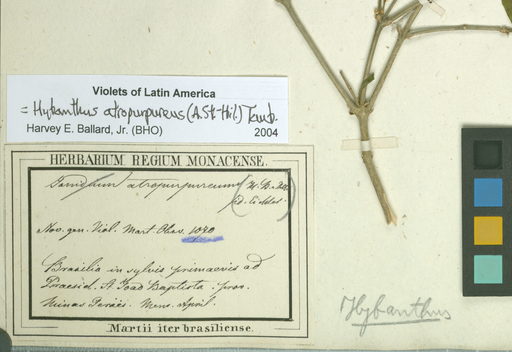 Violets of Latin America
= Hybanthus atropurpureus (A.St.-Hil.) Taub.
Harvey E. Ballard, Jr. (BHO) 2004
HERBARIUM REGIUM MONACENSE.
atropurpureum
Nov. gen. Viol. Mart. Obav. 1040
Brasilia in sylvis primaevis ad
Praesid. S. Joao Baptista. prov.
Minas Geraës. Mens. April.
Martii iter brasiliense.
Hybanthus